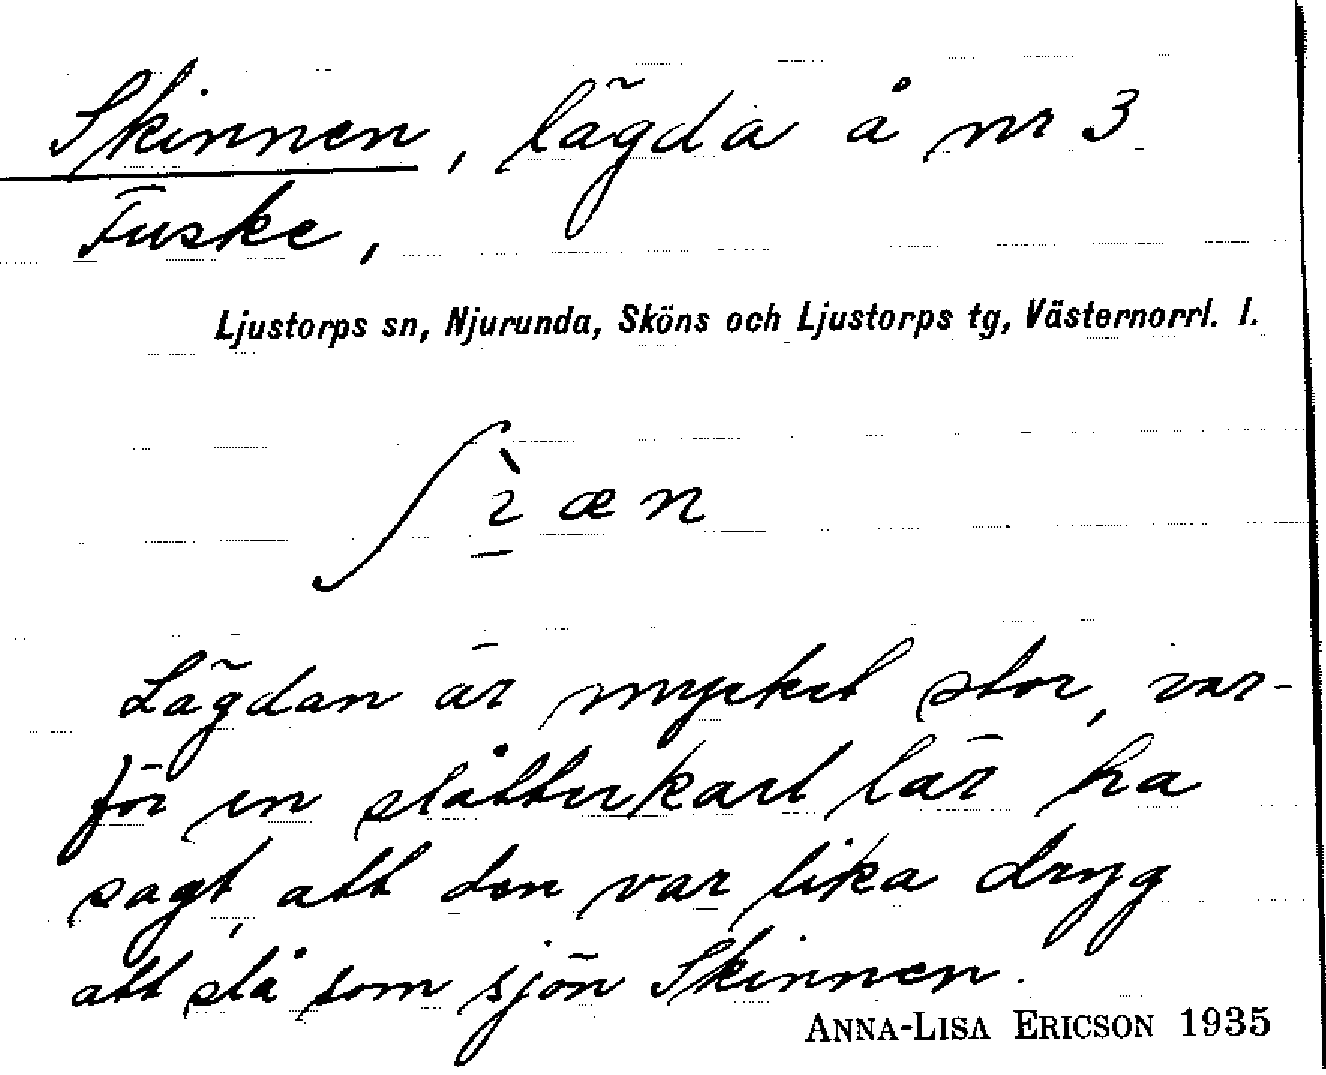 Skinnen, lägda å nr 3
Fuske,
Ljustorps sn, Njurunda, Sköns och Ljustorps tg, Västernorrl. l.
Lägdan är mycket stor, var-
för en slåtterkarl lär ha
sagt, att den var lika dryg
att slå som sjön Skinnen.
ANNA-LISA ERICSON 1935